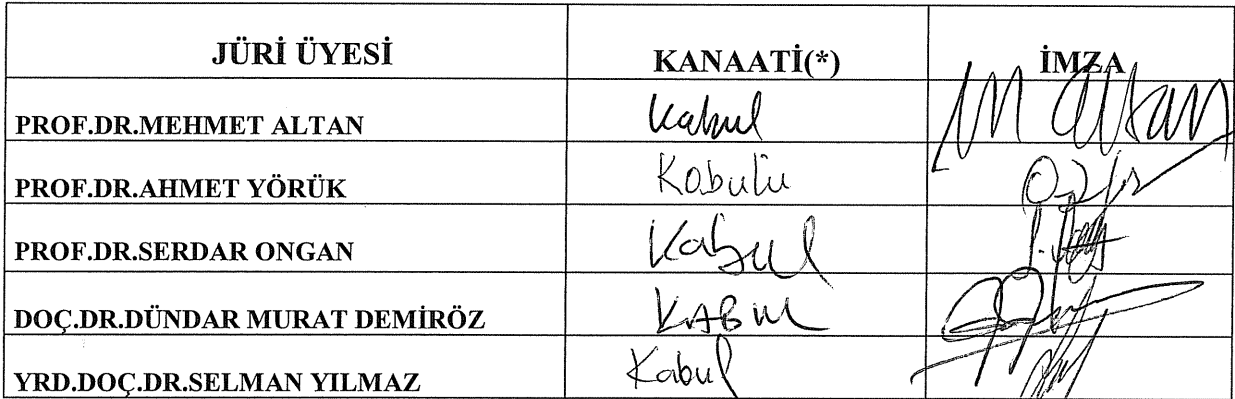 JÜRİ ÜYESİ KANAATİ(*) İMZA
PROF.DR.MEHMET ALTAN Kabul M Altan
PROF.DR.AHMET YÖRÜK Kabulü
PROF.DR.SERDAR ONGAN Kabul
DOÇ.DR.DÜNDAR MURAT DEMİRÖZ KABUL
YRD.DOÇ.DR.SELMAN YILMAZ Kabul